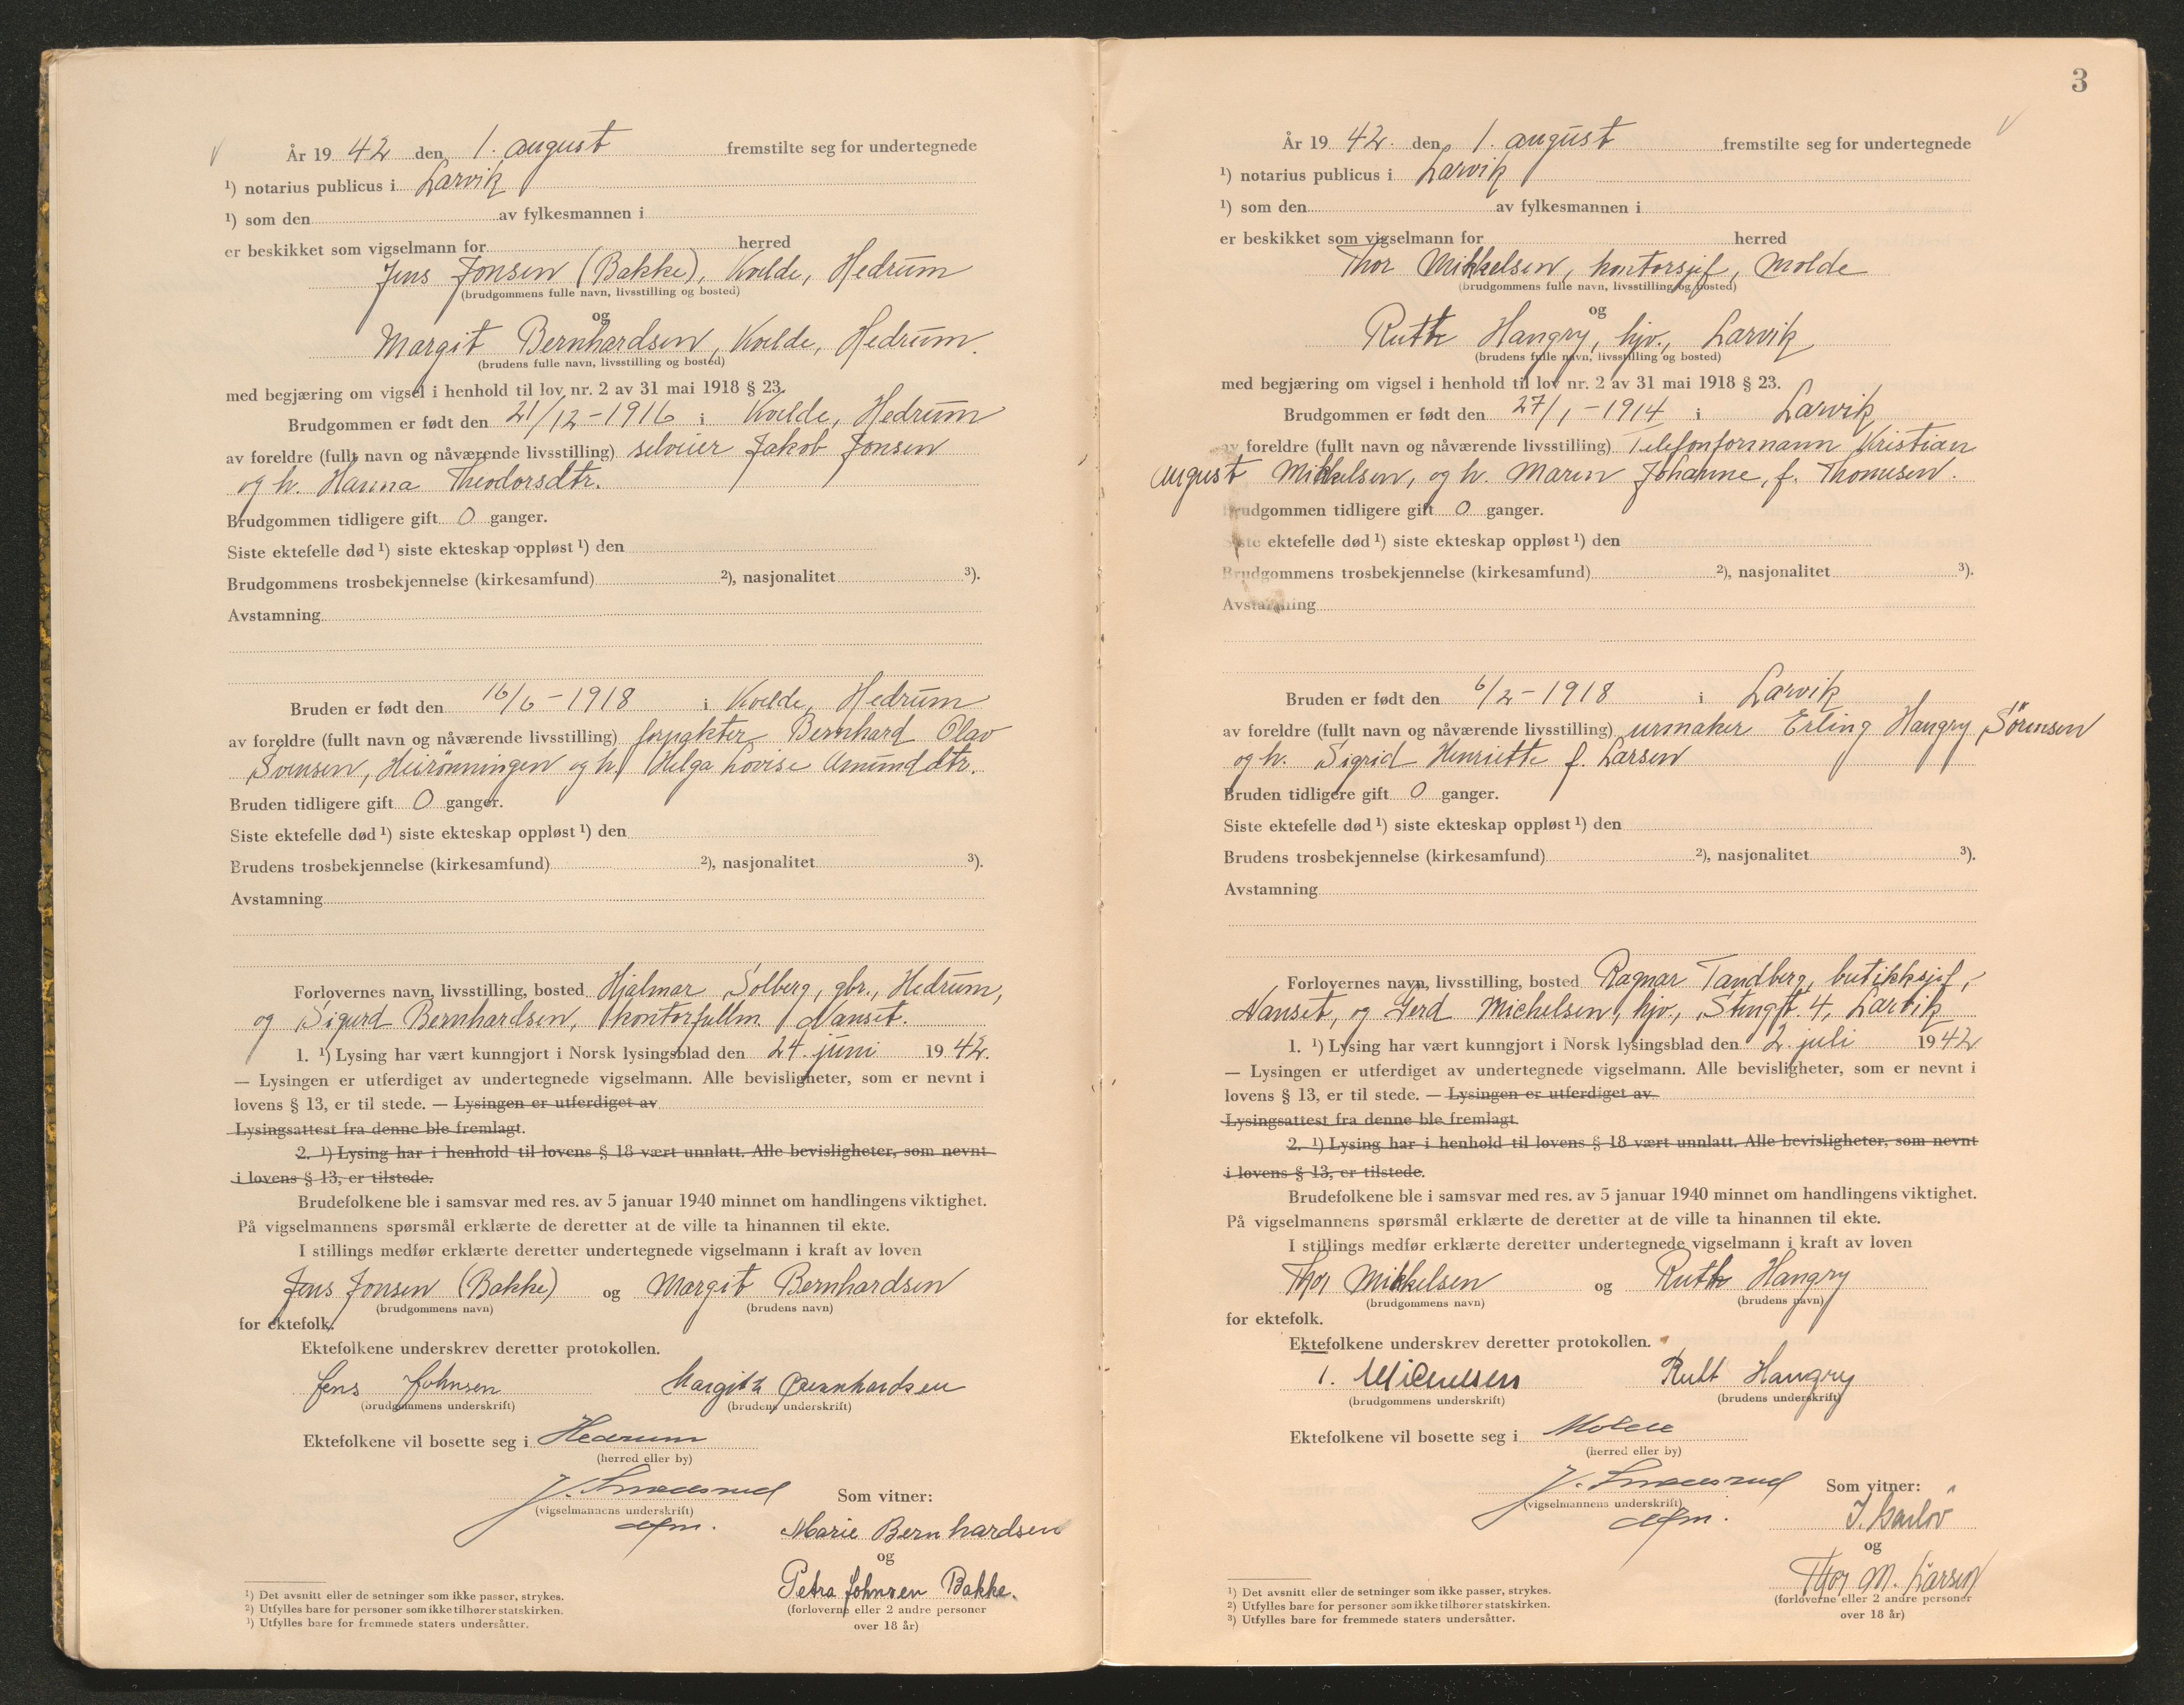 År 19 42 den 1. august fremstilte seg for undertegnede
¹) notarius publicus i Larvik
¹) som den av fylkesmannen i
er beskikket som vigselmann for herred
Jens Jonsen (Bakke), Kvelde, Hedrum
(brudgommens fulle navn, livsstilling og bosted)
og
Margit Bernhardsen, Kvelde, Hedrum.
(brudens fulle navn, livsstilling og bosted)
med begjæring om vigsel i henhold til lov nr. 2 av 31 mai 1918 § 23.
Brudgommen er født den 21/12-1916 i Kvelde, Hedrum
av foreldre (fullt navn og nåværende livsstilling) selveier Jakob Jonsen
og h. Hanna Theodorsdtr.
Brudgommen tidligere gift 0 ganger.
Siste ektefelle død ¹) siste ekteskap oppløst ¹) den
Brudgommens trosbekjennelse (kirkesamfund) ²), nasjonalitet ³).
Avstamning
Bruden er født den 16/6-1918 i Kvelde, Hedrum
av foreldre (fullt navn og nåværende livsstilling) forpakter Bernhard Olav
Svensen, og h. Helga Lovise Amunddtr.
Bruden tidligere gift 0 ganger.
Siste ektefelle død ¹) siste ekteskap oppløst ¹) den
Brudens trosbekjennelse (kirkesamfund) ²), nasjonalitet ³).
Avstamning
Forlovernes navn, livsstilling, bosted Hjalmar Solberg, gbr., Hedrum,
og Sigurd Bernhardsen, kontorfullm. Nanset.
1. ¹) Lysing har vært kunngjort i Norsk lysingsblad den 24. juni 1942.
— Lysingen er utferdiget av undertegnede vigselmann. Alle bevisligheter, som er nevnt i
lovens § 13, er til stede. — Lysingen er utferdiget av
Lysingsattest fra denne ble fremlagt.
2. ¹) Lysing har i henhold til lovens § 18 vært unnlatt. Alle bevisligheter, som nevnt
i lovens § 13, er tilstede.
Brudefolkene ble i samsvar med res. av 5 januar 1940 minnet om handlingens viktighet.
På vigselmannens spørsmål erklærte de deretter at de ville ta hinannen til ekte.
I stillings medfør erklærte deretter undertegnede vigselmann i kraft av loven
Jens Jonsen (Bakke) og Margit Bernhardsen
(brudgommens navn) (brudens navn)
for ektefolk.
Ektefolkene underskrev deretter protokollen.
Jens Johnsen Margith Bernhardsen
(brudgommens underskrift) (brudens underskrift)
Ektefolkene vil bosette seg i Hedrum
(herred eller by)
Som vitner:
(vigselmannens underskrift)
Marie Bernhardsen
og
Petra Johnsen Bakke.
(forloverne eller 2 andre personer
over 18 år)
¹) Det avsnitt eller de setninger som ikke passer, strykes.
²) Utfylles bare for personer som ikke tilhører statskirken.
³) Utfylles bare for fremmede staters undersåtter.
3
År 19 42. den 1. august fremstilte seg for undertegnede
¹) notarius publicus i Larvik
¹) som den av fylkesmannen i
er beskikket som vigselmann for herred
Thor Mikkelsen, kontorsjef, Molde
(brudgommens fulle navn, livsstilling og bosted)
og
Ruth Hangry, hjv., Larvik
(brudens fulle navn, livsstilling og bosted)
med begjæring om vigsel i henhold til lov nr. 2 av 31 mai 1918 § 23.
Brudgommen er født den 27/1-1914 i Larvik
av foreldre (fullt navn og nåværende livsstilling) Telefonformann Kristian
August Mikkelsen, og h. Maren Johanne, f. Thomesen.
Brudgommen tidligere gift 0 ganger.
Siste ektefelle død ¹) siste ekteskap oppløst ¹) den
Brudgommens trosbekjennelse (kirkesamfund) ²), nasjonalitet ³).
Avstamning
Bruden er født den 6/2-1918 i Larvik
av foreldre (fullt navn og nåværende livsstilling) urmaker Erling Hangry Sörensen
og h. Sigrid Henriette f. Larsen
Bruden tidligere gift 0 ganger.
Siste ektefelle død ¹) siste ekteskap oppløst ¹) den
Brudens trosbekjennelse (kirkesamfund) ²), nasjonalitet ³).
Avstamning
Forlovernes navn, livsstilling, bosted Ragnar Tandberg, butikksjef,
Nanset, og Gerd Michelsen, hjv., 4, Larvik
1. ¹) Lysing har vært kunngjort i Norsk lysingsblad den 2. juli 1942
— Lysingen er utferdiget av undertegnede vigselmann. Alle bevisligheter, som er nevnt i
lovens § 13, er til stede. — Lysingen er utferdiget av
Lysingsattest fra denne ble fremlagt.
2. ¹) Lysing har i henhold til lovens § 18 vært unnlatt. Alle bevisligheter, som nevnt
i lovens § 13, er tilstede.
Brudefolkene ble i samsvar med res. av 5 januar 1940 minnet om handlingens viktighet.
På vigselmannens spørsmål erklærte de deretter at de ville ta hinannen til ekte.
I stillings medfør erklærte deretter undertegnede vigselmann i kraft av loven
Thor Mikkelsen og Ruth Hangry
(brudgommens navn) (brudens navn)
for ektefolk.
Ektefolkene underskrev deretter protokollen.
Hangry
(brudgommens underskrift) (brudens underskrift)
Ektefolkene vil bosette seg i Molde
(herred eller by)
Som vitner:
(vigselmannens underskrift)
og
Thor M. Larsen
(forloverne eller 2 andre personer
over 18 år)
¹) Det avsnitt eller de setninger som ikke passer, strykes.
²) Utfylles bare for personer som ikke tilhører statskirken.
³) Utfylles bare for fremmede staters undersåtter.